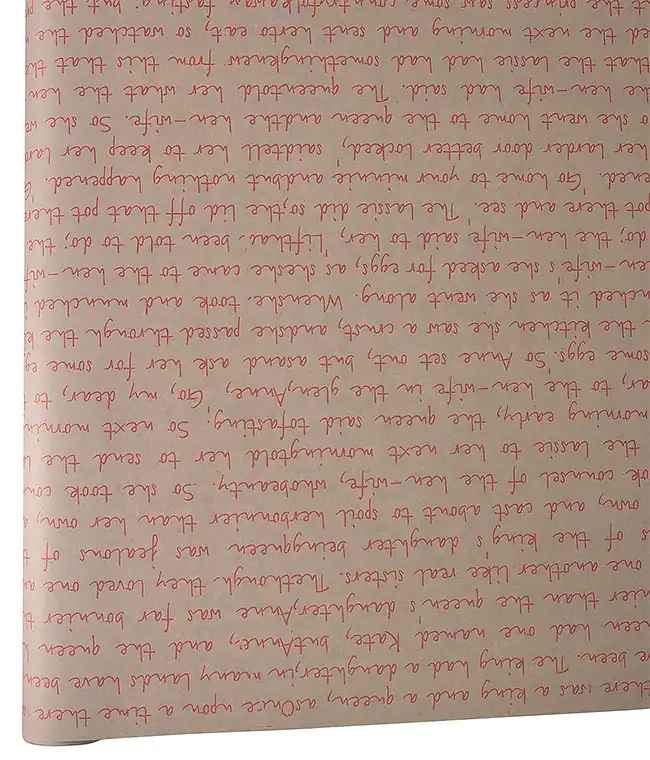 there was a king and a queen, asOnce upon a time a there
ve been. The king had a daughter,in many lands have been
een had one named Kate, butAnne, and the queen
nier than the queen's daughter,Anne was far bonnier th
one another like real sisters. Thethough they loved one an
s of the king's daughter beingqueen was jealous of t
own, and cast about to spoil herbonnier than her own, a
ok counsel of the hen-wife, whobeauty. So she took cou
the lassie to her next morningtold her to send the l
morning early, the queen said tofasting. So next mornin
ar, to the hen-wife in the glen,Anne, 'Go, my dear, to t
some eggs.'So Anne set out, but asand ask her for some eg
the kitchen she saw a crust, andshe passed through the k
nched it as she went along. Whenshe took and munched
en-wife's she asked for eggs, as sheshe came to the hen-wif
do; the hen-wife said to her, 'Lifthad been told to do; the
pot there and see.' The lassie did so;the lid off that pot ther
ened. 'Go home to your minnie andbut nothing happened. 'G
her larder door better locked,'saidtell her to keep her lar
o she went home to the queen andthe hen-wife. So she we
he hen-wife had said. The queentold her what the hen
that the lassie had had somethingknew from this that the
ed the next morning and sent herto eat, so watched the
t the princess saw some away fasting; but the p